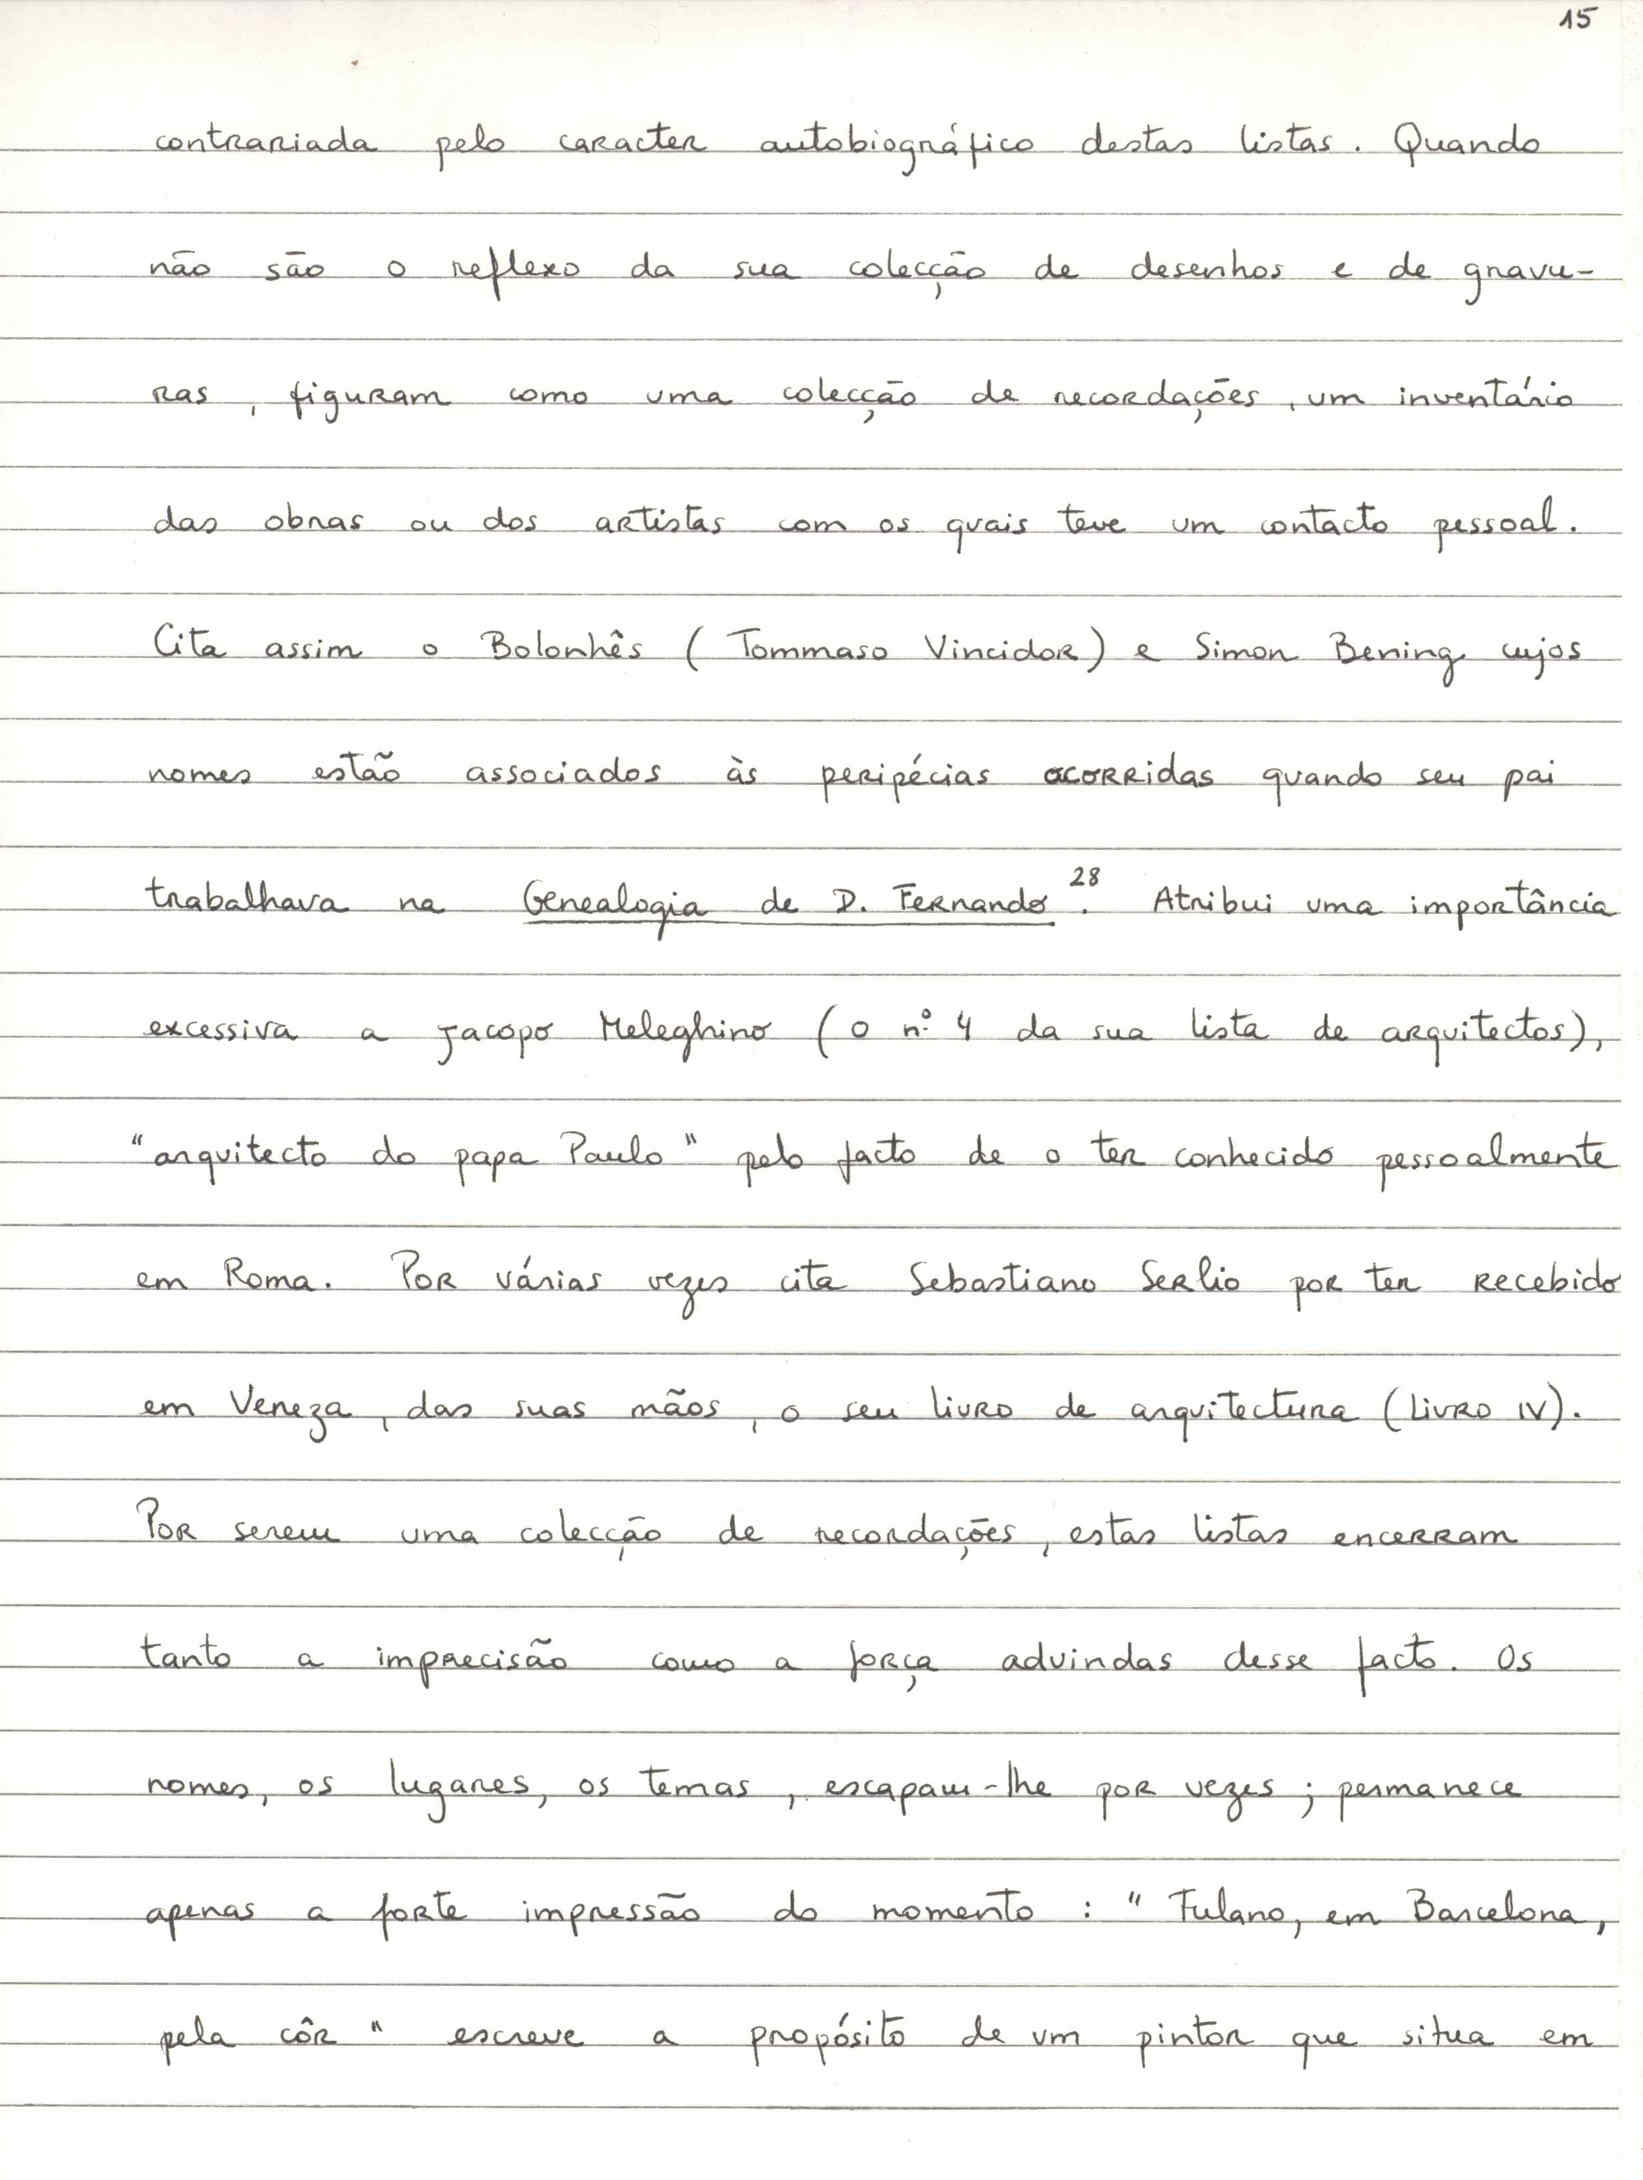 15
contrariada pelo caracter autobiográfico destas listas. Quando
não são o reflexo da sua colecção de desenhos e de gravu-
ras, figuram como uma colecção de recordações, um inventário
das obras ou dos artistas com os quais teve um contacto pessoal.
Cita assim o Bolonhês (Tommaso Vincidor) e Simon Bening cujos
nomes estão associados às peripécias ocorridas quando seu pai
trabalhava na Genealogia de D. Fernando 28. Atribui uma importância
excessiva a Jacopo Meleghino (o nº 4 da sua lista de arquitectos),
"arquitecto do papa Paulo" pelo facto de o ter conhecido pessoalmente
em Roma. Por várias vezes cita Sebastiano Serlio por ter recebido
em Veneza, das suas mãos, o seu livro de arquitectura (Livro IV).
Por serem uma colecção de recordações, estas listas encerram
tanto a imprecisão como a força advindas desse facto. Os
nomes, os lugares, os temas, escapam-lhe por vezes; permanece
apenas a forte impressão do momento : "Fulano, em Barcelona,
pela côr" escreve a propósito de um pintor que situa em